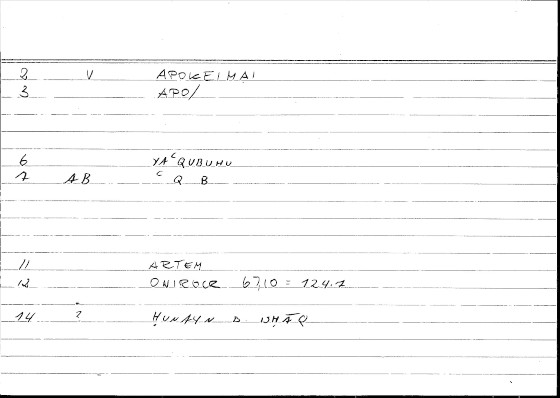 2 V APOKEIMAI
3 APO/
6 YAᶜQUBUHU
7 AB ᶜ Q B
11 ARTEM
12 ONIROCR 67,10 = 124.7
14 ? ḤUNAYN B ISḤĀQ